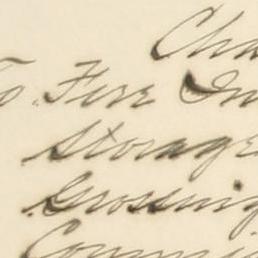 Cha
To Fire In
Storage
Grossing
Comm